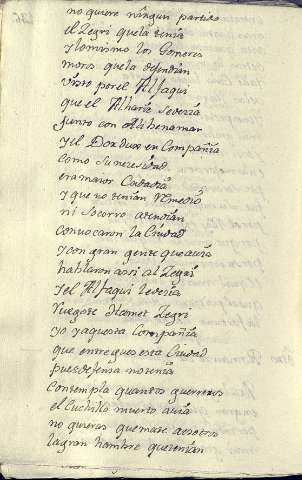 no quiere ningun partido
el Zegri que la tenia
y lo mismo los Gomeres
moros que la defendian
visto por el Alfaqui
que el Alharis se
junto con Alibenamar
y el Dordux en Compañia
como su necesidad
era maior Cadadia
y que no tenian Remedio
ni socorro atendian
convocaron la Ciudad
y con gran gente que auia
hablaron assi al Zegri
y el Alfaqui le decia
Ruegote Hamet Zegri
yo y aquesta Compañia
que entregues esta Ciudad
pues defensa no tenia
contempla quantos guerreros
el Cuchillo muerto auia
no quieras que mate a
la gran hambre que tenian